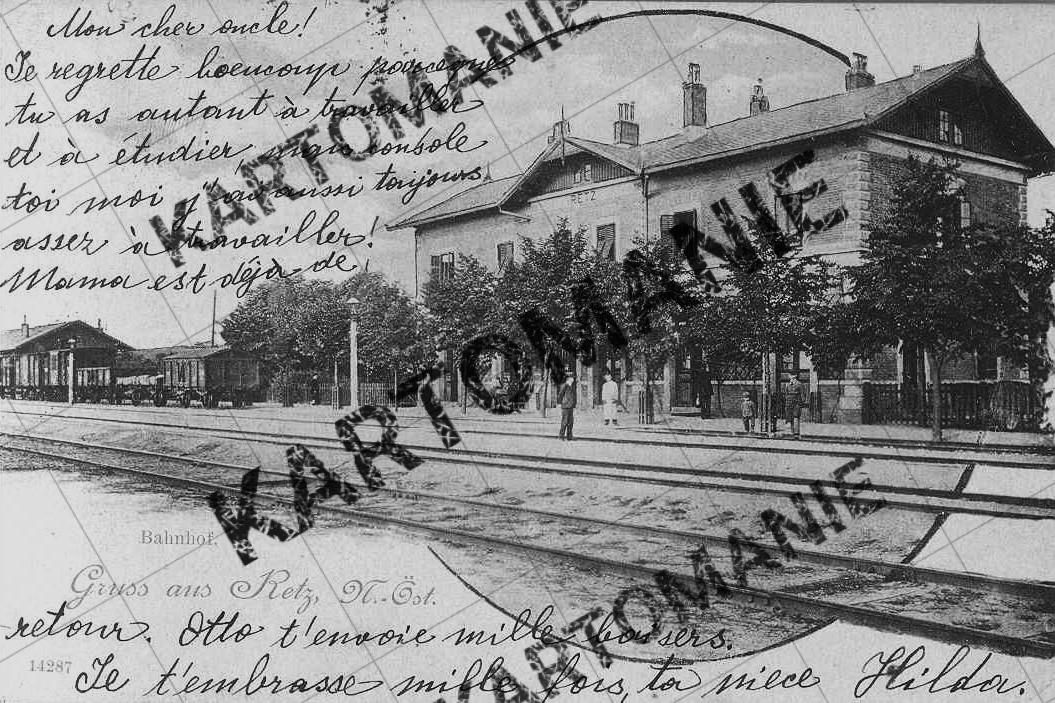 Mon cher oncle!
Je regrette boeucoup parceque
tu as autant à travailler
et à étudier, mais console
toi moi j'ai aussi toujours
assez à travailler!
Mama est déjà de
RETZ
Bahnhof.
Gruss aus Retz, N.-Öst.
retour. Otto t'envoie mille baisers.
14287
Je t'embrasse mille fois, ta niece Hilda.
KARTOMANIE
KARTOMANIE
KARTOMANIE